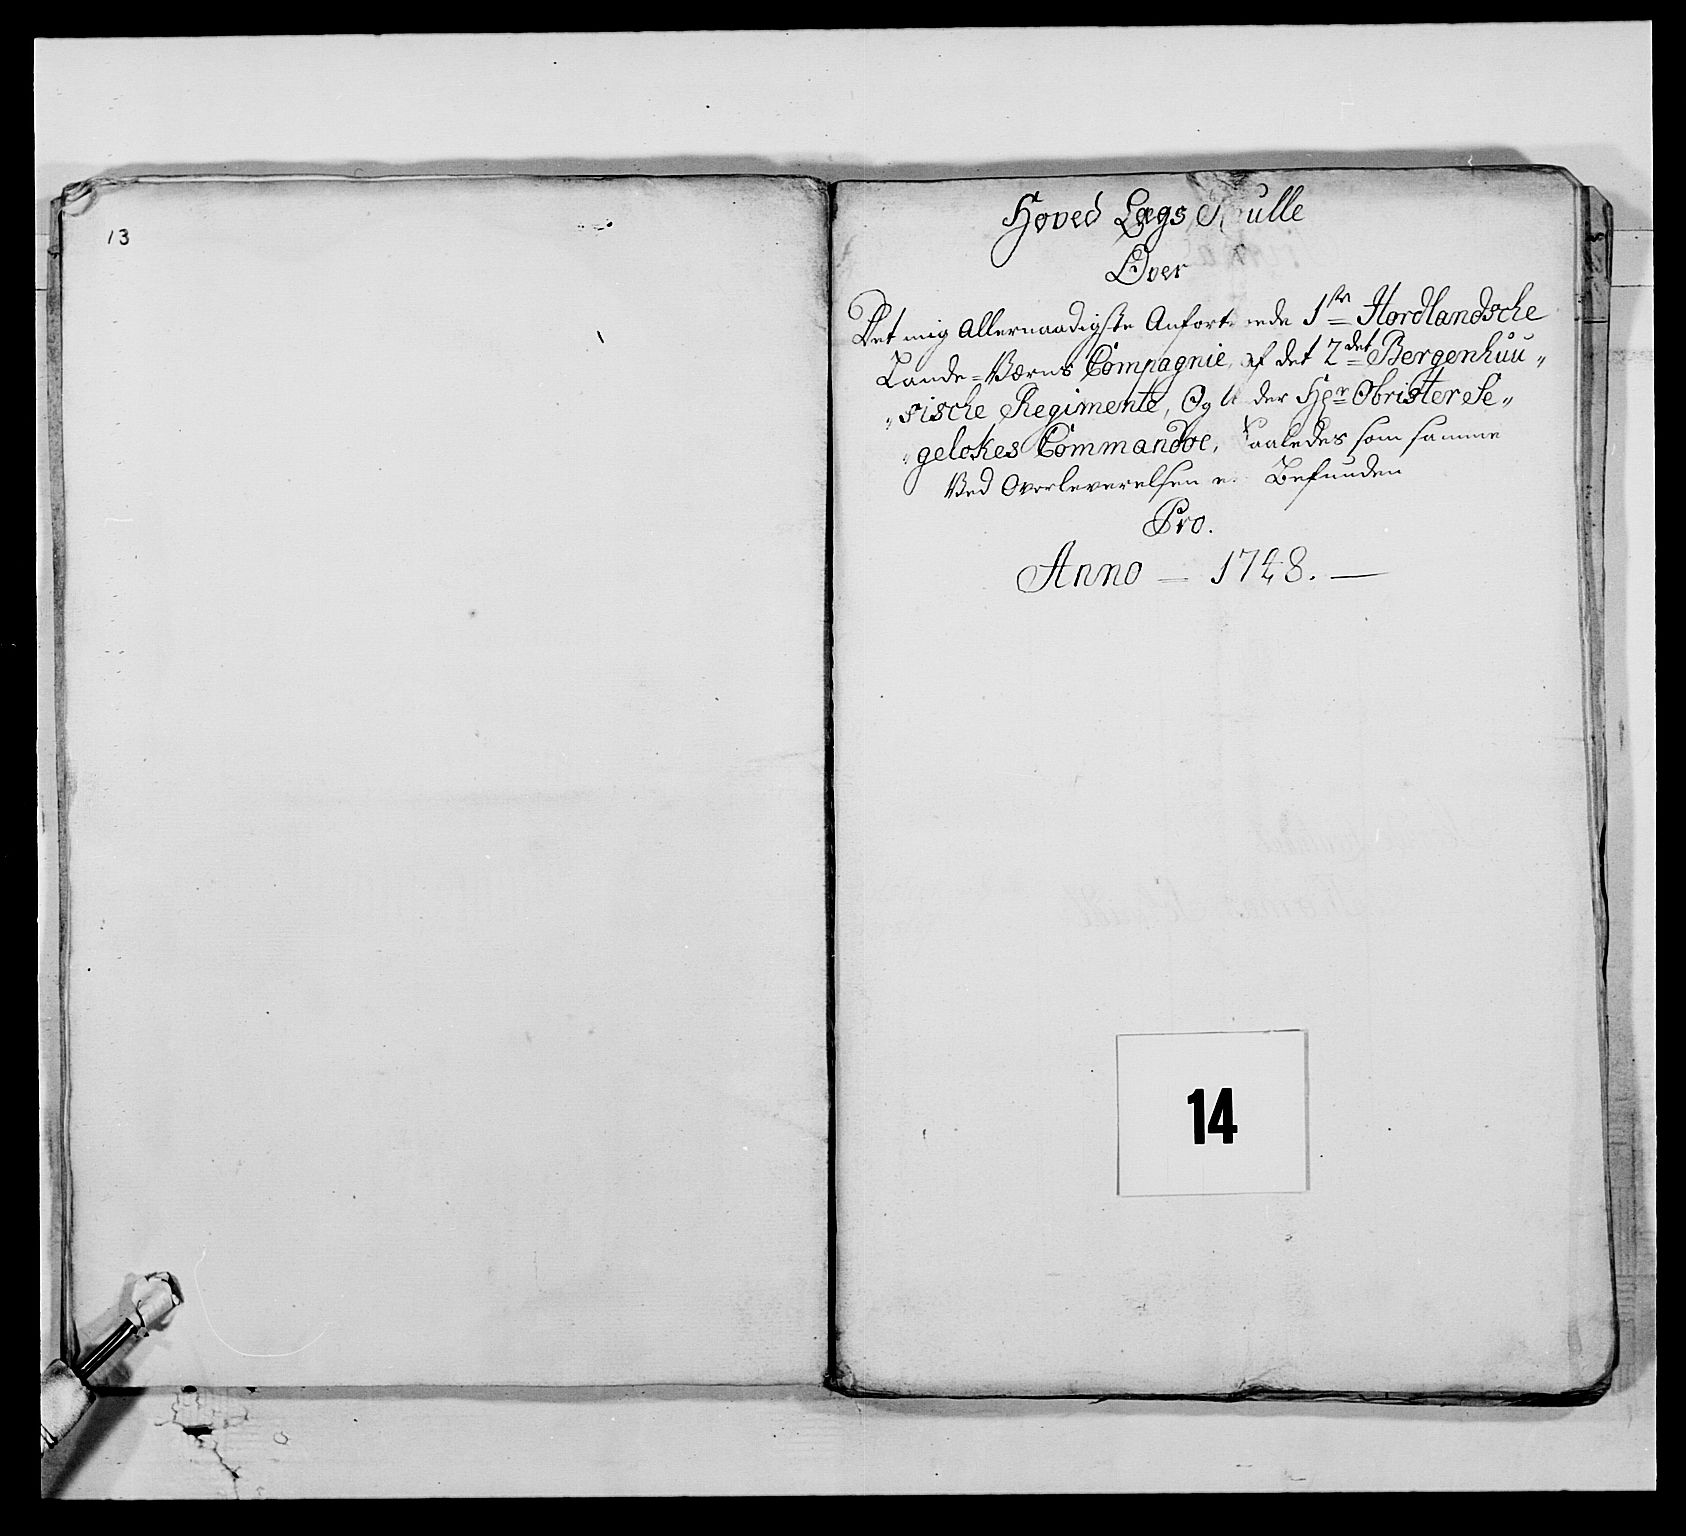 13
Hoved Lægs Rulle
Over
Det mig Allernaadigste Anfortroede 1ste Nordlandsche
Lande=Værns Compagnie, af det 2det Bergenhuu„
„sische Regimente, Og Under Hr Obrister Se„
„gelckes Commandoe, Saaledes som samme
Ved Overleverelsen er Befunden
Pro.
Anno – 1748. —
14